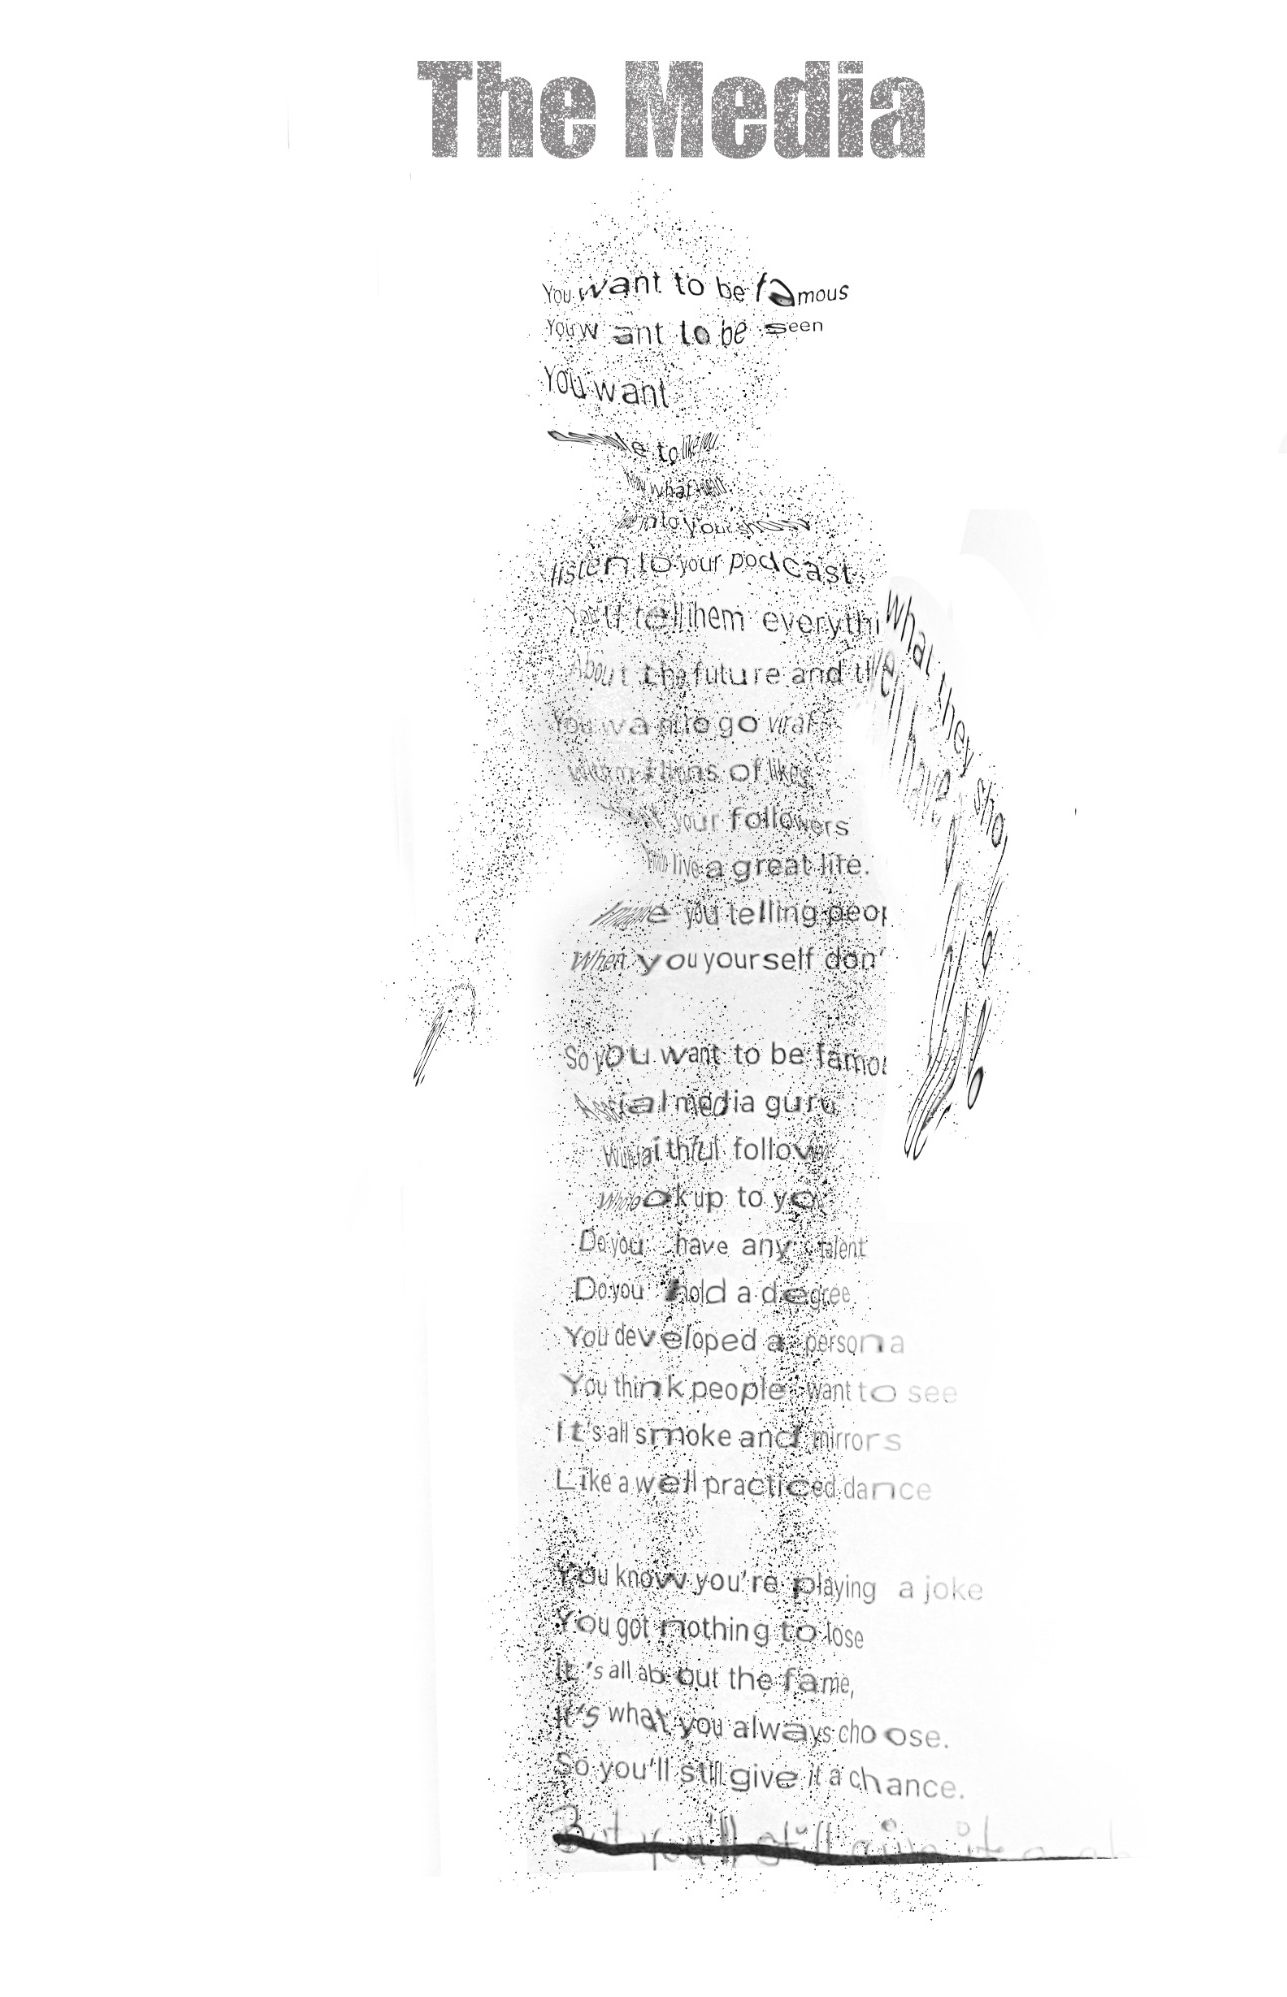 The Media
You want to be famous
You want to be seen
You want
to like you
what
into your show
listen to your podcast
You'll tell them everythi
what they sho
About the future and th
You want to go viral
With millions of likes
your followers
You live a great life.
Imagine you telling peop
When you yourself don'
So you want to be famou
A social media guru
With faithful follow
Who look up to you
Do you have any talent
Do you hold a degree
You developed a persona
You think people want to see
It's all smoke and mirrors
Like a well practiced dance
You know you're playing a joke
You got nothing to lose
It's all about the fame,
It's what you always choose.
So you'll still give it a chance.
But you'll still give it a ch